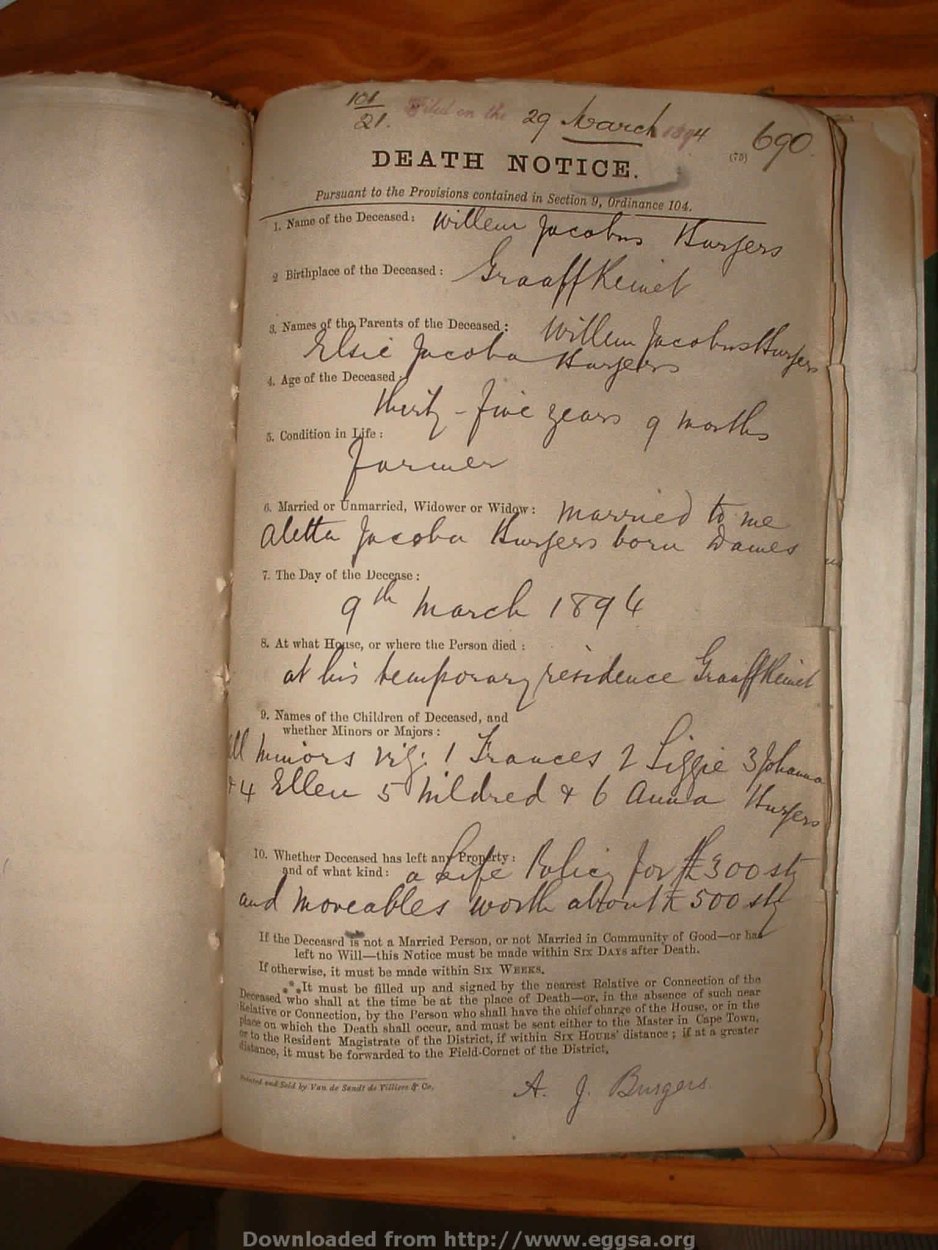 101
21. Filed on the 29 March 1894 690.
(75)
DEATH NOTICE.
Pursuant to the Provisions contained in Section 9, Ordinance 104.
1. Name of the Deceased: Willem Jacobus Burgers
2 Birthplace of the Deceased: Graaff Reinet
3. Names of the Parents of the Deceased: Willem Jacobus Burgers
Elsie Jacoba Burgers
4. Age of the Deceased:
thirty-five years 9 months
5. Condition in Life:
farmer
6. Married or Unmarried, Widower or Widow: married to me
Aletta Jacoba Burgers born Dames
7. The Day of the Decease:
9th March 1894
8. At what House, or where the Person died:
at his temporary residence Graaff Reinet
9. Names of the Children of Deceased, and
whether Minors or Majors:
all minors viz: 1 Frances 2 Lizzie 3 Johanna
4 Ellen 5 Mildred & 6 Anna Burgers
10. Whether Deceased has left any Property:
and of what kind: a Life Policy for £300 stg
and moveables worth about £500 stg
If the Deceased is not a Married Person, or not Married in Community of Good—or has
left no Will—this Notice must be made within SIX DAYS after Death.
If otherwise, it must be made within SIX WEEKS.
*⁎*It must be filled up and signed by the nearest Relative or Connection of the
Deceased who shall at the time be at the place of Death—or, in the absence of such near
Relative or Connection, by the Person who shall have the chief charge of the House, or in the
place on which the Death shall occur, and must be sent either to the Master in Cape Town,
or to the Resident Magistrate of the District, if within SIX HOURS' distance; if at a greater
distance, it must be forwarded to the Field-Cornet of the District,
Printed and Sold by Van de Sandt de Villiers & Co.
A. J. Burgers
Downloaded from http://www.eggsa.org